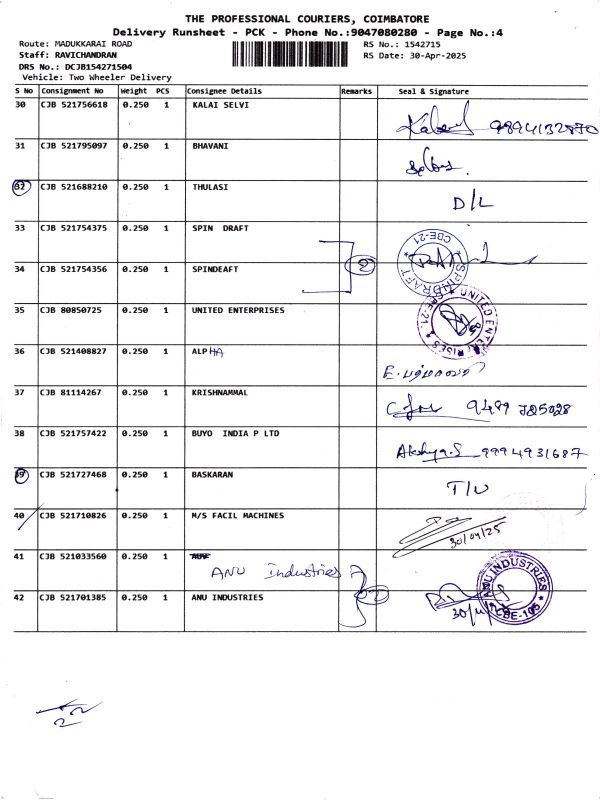 THE PROFESSIONAL COURIERS, COIMBATORE
Delivery Runsheet - PCK - Phone No.:9047080280 - Page No.:4
Route: MADUKKARAI ROAD
RS No.: 1542715
Staff: RAVICHANDRAN
RS Date: 30-Apr-2025
DRS No.: DCJB154271504
Vehicle: Two Wheeler Delivery
S No Consignment No Weight PCS Consignee Details Remarks Seal & Signature
30 CJB 521756618 0.250 1 KALAI SELVI
9894132870
31 CJB 521795097 0.250 1 BHAVANI
32 CJB 521688210 0.250 1 THULASI
D/L
33 CJB 521754375 0.250 1 SPIN DRAFT
SPINDRAFT CBE-21
34 CJB 521754356 0.250 1 SPINDEAFT
2
35 CJB 80850725 0.250 1 UNITED ENTERPRISES
UNITED ENTERPRISES CBE-21
36 CJB 521408827 0.250 1 ALPHA
37 CJB 81114267 0.250 1 KRISHNAMMAL
9489 725028
38 CJB 521757422 0.250 1 BUYO INDIA P LTD
Akshya.S 9994931687
39 CJB 521727468 0.250 1 BASKARAN
40 CJB 521710826 0.250 1 M/S FACIL MACHINES
30/04/25
41 CJB 521033560 0.250 1
ANU Industries
42 CJB 521701385 0.250 1 ANU INDUSTRIES
2
ANU INDUSTRIES CBE-105